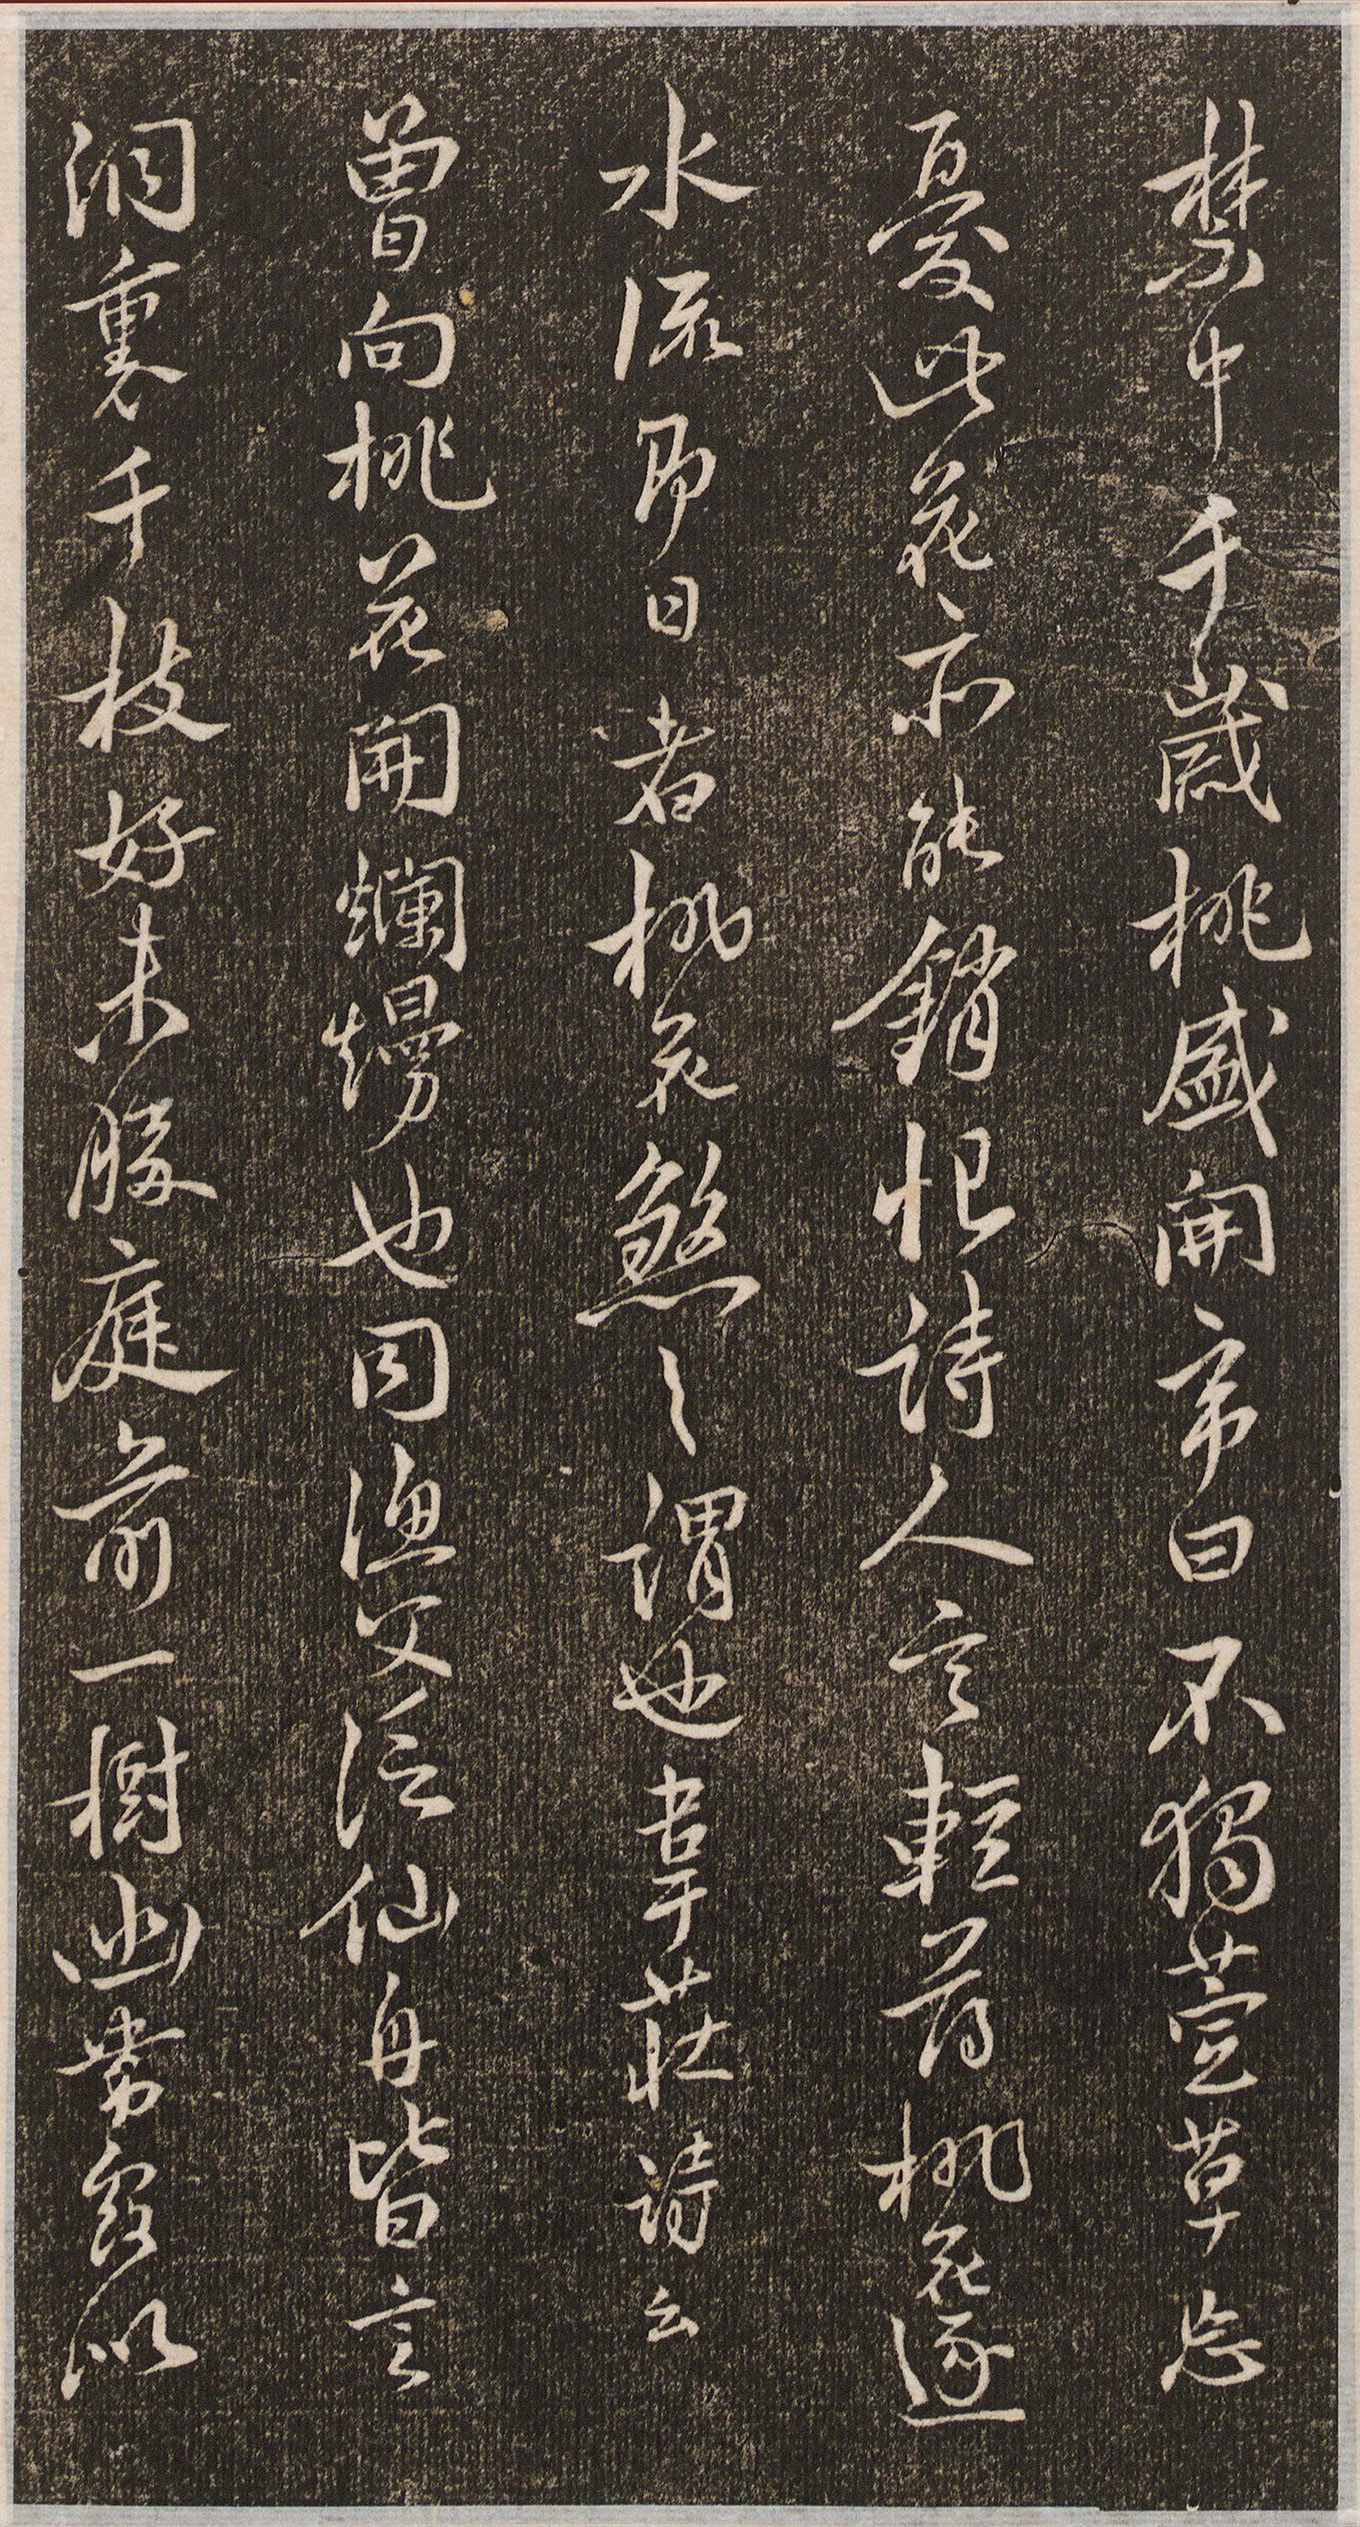 禁中千歲桃盛開帝曰不獨萱草忘
憂此花亦能銷恨詩人言輕薄桃花逐
水流即日者桃花煞之謂也韋莊詩云
曾向桃花開爛熳也同漁父泛仙舟皆言
洞裏千枝好未勝庭前一樹幽崇窺以